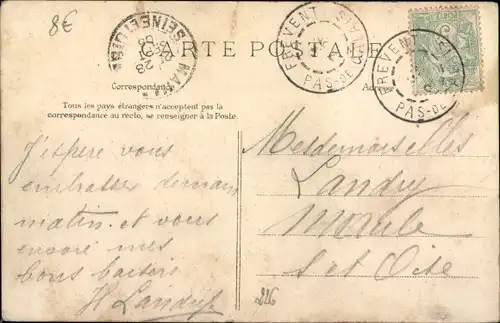 8€
CARTE POSTALE
SEINE ET OISE
28
FREVENT
PAS-DE-CALAIS
FREVENT
PAS-DE-CALAIS
Correspondance
Tous les pays étrangers n'acceptent pas la
correspondance au recto, se renseigner à la Poste.
J'espère vous
embrasser demain
matin. et vous
envoie mes
bons baisers
H Landry
Mesdemoiselles
Landry
S et Oise
226